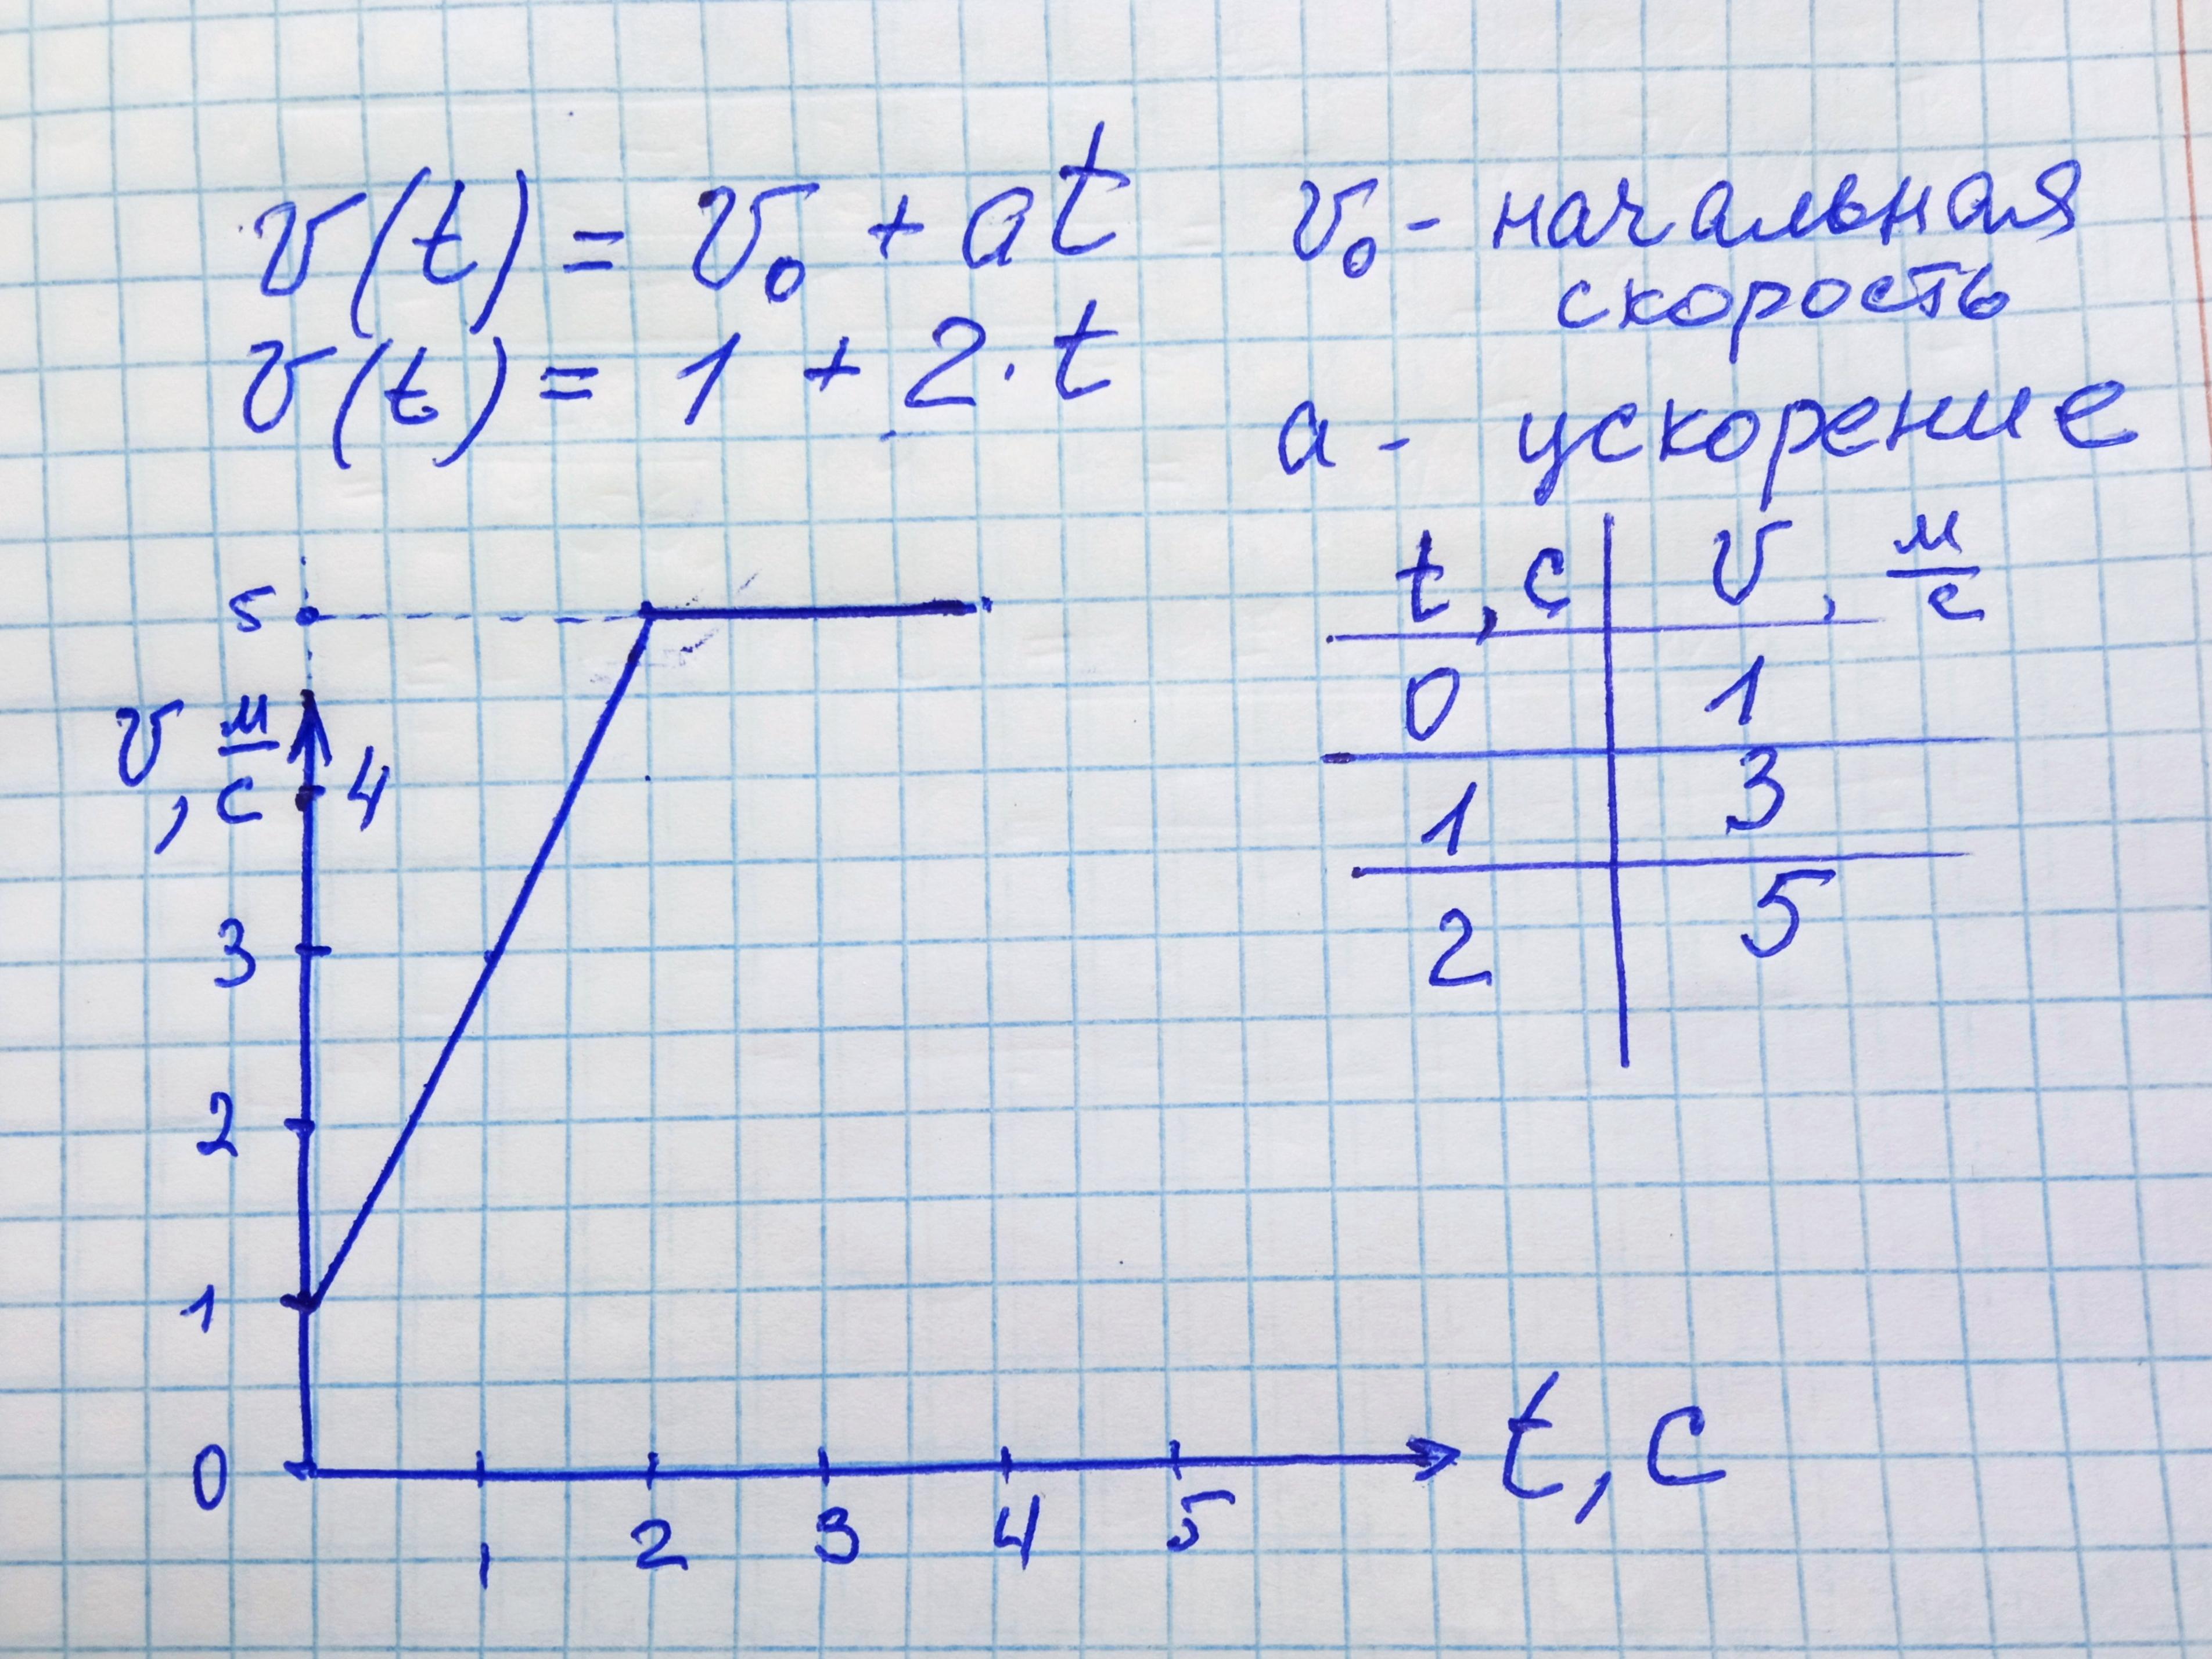 v(t) = v₀ + at
v(t) = 1 + 2 · t
v₀ - начальная
скорость
a - ускорение
t, с | v, м/с
0 | 1
1 | 3
2 | 5
5
v, м/с
4
3
2
1
0
1 2 3 4 5
t, с